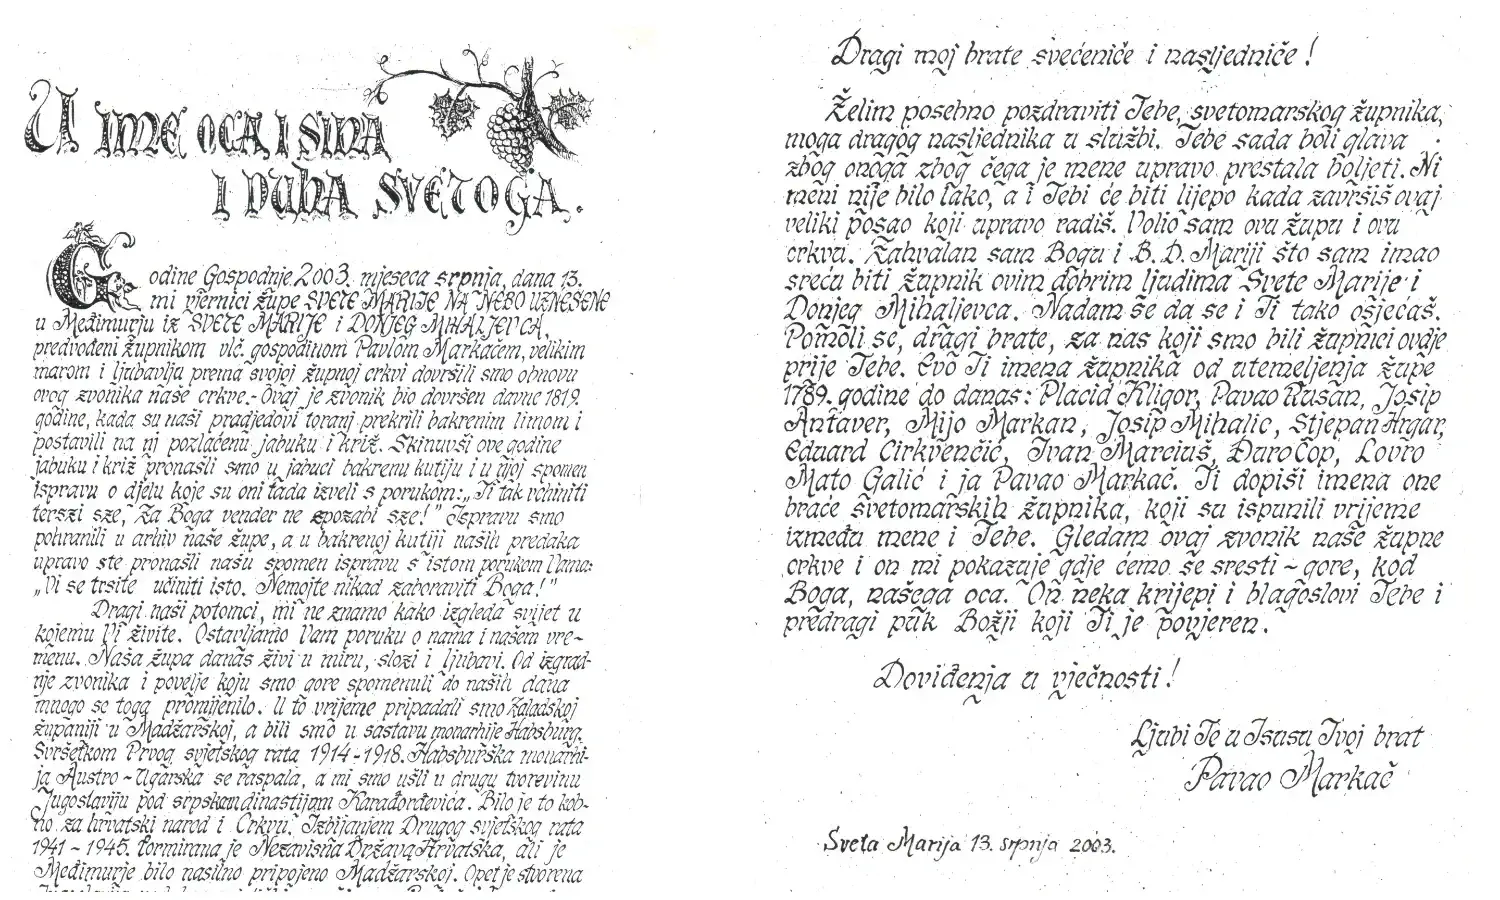 U IME OCA I SINA
I DUHA SVETOGA.
Godine Gospodnje 2003. mjeseca srpnja, dana 13.
mi vjernici župe SVETE MARIJE NA NEBO UZNESENE
u Međimurju iz SVETE MARIJE i DONJEG MIHALJEVCA,
predvođeni župnikom vlč. gospodinom Pavlom Markačem, velikim
marom i ljubavlju prema svojoj župnoj crkvi dovršili smo obnovu
ovog zvonika naše crkve.- Ovaj je zvonik bio dovršen davne 1819.
godine, kada su naši pradjedovi toranj prekrili bakrenim limom i
postavili na nj pozlaćenu jabuku i križ. Skinuvši ove godine
jabuku i križ pronašli smo u jabuci bakrenu kutiju i u njoj spomen
ispravu o djelu koje su oni tada izveli s porukom: „Ti tak vchiniti
terszi sze, za Boga vender ne zpozabi sze!" Ispravu smo
pohranili u arhiv naše župe, a u bakrenoj kutiji naših predaka
upravo ste pronašli našu spomen ispravu s istom porukom Vama:
„Vi se trsite učiniti isto. Nemojte nikad zaboraviti Boga!"
Dragi naši potomci, mi ne znamo kako izgleda svijet u
kojemu Vi živite. Ostavljamo Vam poruku o nama i našem vre-
menu. Naša župa danas živi u miru, slozi i ljubavi. Od izgrad-
nje zvonika i povelje koju smo gore spomenuli do naših dana
mnogo se toga promijenilo. U to vrijeme pripadali smo Zaladskoj
županiji u Madžarskoj, a bili smo u sastavu monarhije Habsburg.
Svršetkom Prvog svjetskog rata 1914-1918. Habsburška monarhi-
ja Austro-Ugarska se raspala, a mi smo ušli u drugu tvorevinu
Jugoslaviju pod srpskom dinastijom Karađorđevića. Bilo je to kob-
no za hrvatski narod i Crkvu. Izbijanjem Drugog svjetskog rata
1941-1945. formirana je Nezavisna Država Hrvatska, ali je
Međimurje bilo nasilno pripojeno Madžarskoj. Opet je stvorena
Dragi moj brate svećeniče i nasljedniče!
Želim posebno pozdraviti Tebe, svetomarskog župnika,
moga dragog nasljednika u službi. Tebe sada boli glava
zbog onoga zbog čega je mene upravo prestala boljeti. Ni
meni nije bilo lako, a i Tebi će biti lijepo kada završiš ovaj
veliki posao koji upravo radiš. Volio sam ovu župu i ovu
crkvu. Zahvalan sam Bogu i B. D. Mariji što sam imao
sreću biti župnik ovim dobrim ljudima Svete Marije i
Donjeg Mihaljevca. Nadam se da se i Ti tako osjećaš.
Pomoli se, dragi brate, za nas koji smo bili župnici ovdje
prije Tebe. Evo Ti imena župnika od utemeljenja župe
1789. godine do danas: Placid Kligor, Pavao Rusan, Josip
Antaver, Mijo Markan, Josip Mihalic, Stjepan Hrgar,
Eduard Cirkvenčić, Ivan Marciuš, Đuro Čop, Lovro
Mato Galić i ja Pavao Markač. Ti dopiši imena one
braće svetomarskih župnika, koji su ispunili vrijeme
između mene i Tebe. Gledam ovaj zvonik naše župne
crkve i on mi pokazuje gdje ćemo se sresti - gore, kod
Boga, našega oca. On neka krijepi i blagoslovi Tebe i
predragi puk Božji koji Ti je povjeren.
Doviđenja u vječnosti!
Ljubi Te u Isusu Tvoj brat
Pavao Markač
Sveta Marija 13. srpnja 2003.